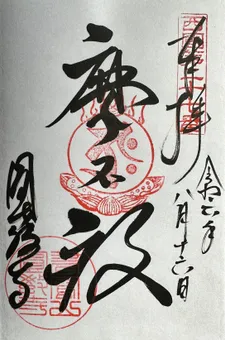 奉拝
令和六年
八月十六日
摩尼殿
圓教寺